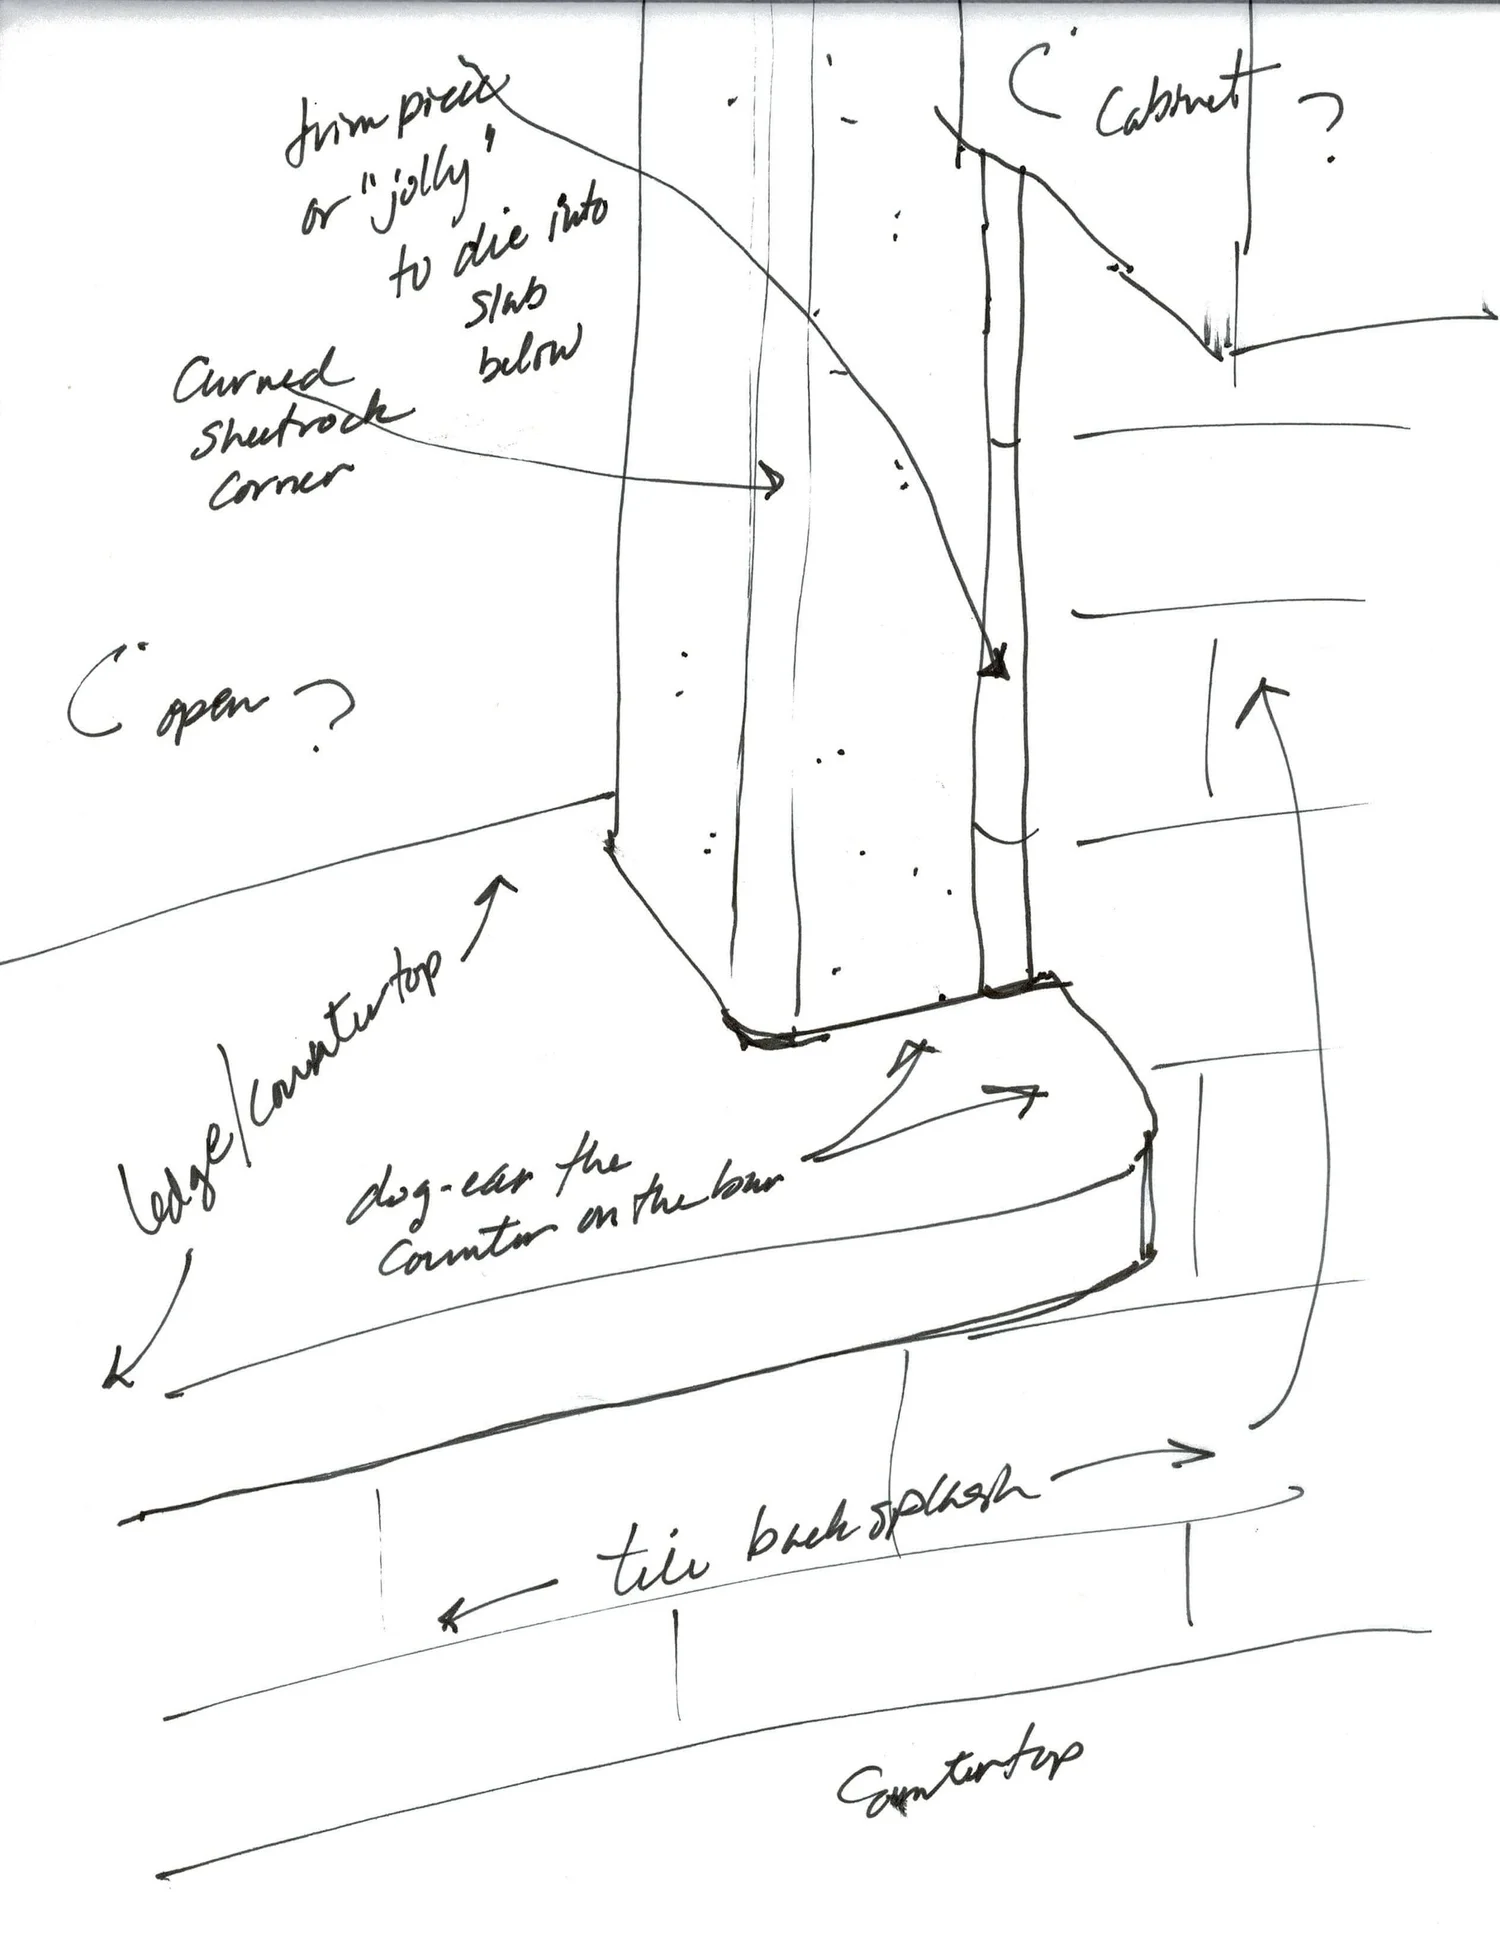 trim piece
or "jolly"
to die into
slab
below
Cabinet ?
Curned
Sheetrock
Corner
open ?
ledge/countertop
dog-ear the
Counter on the bar
tile back splash
Countertop